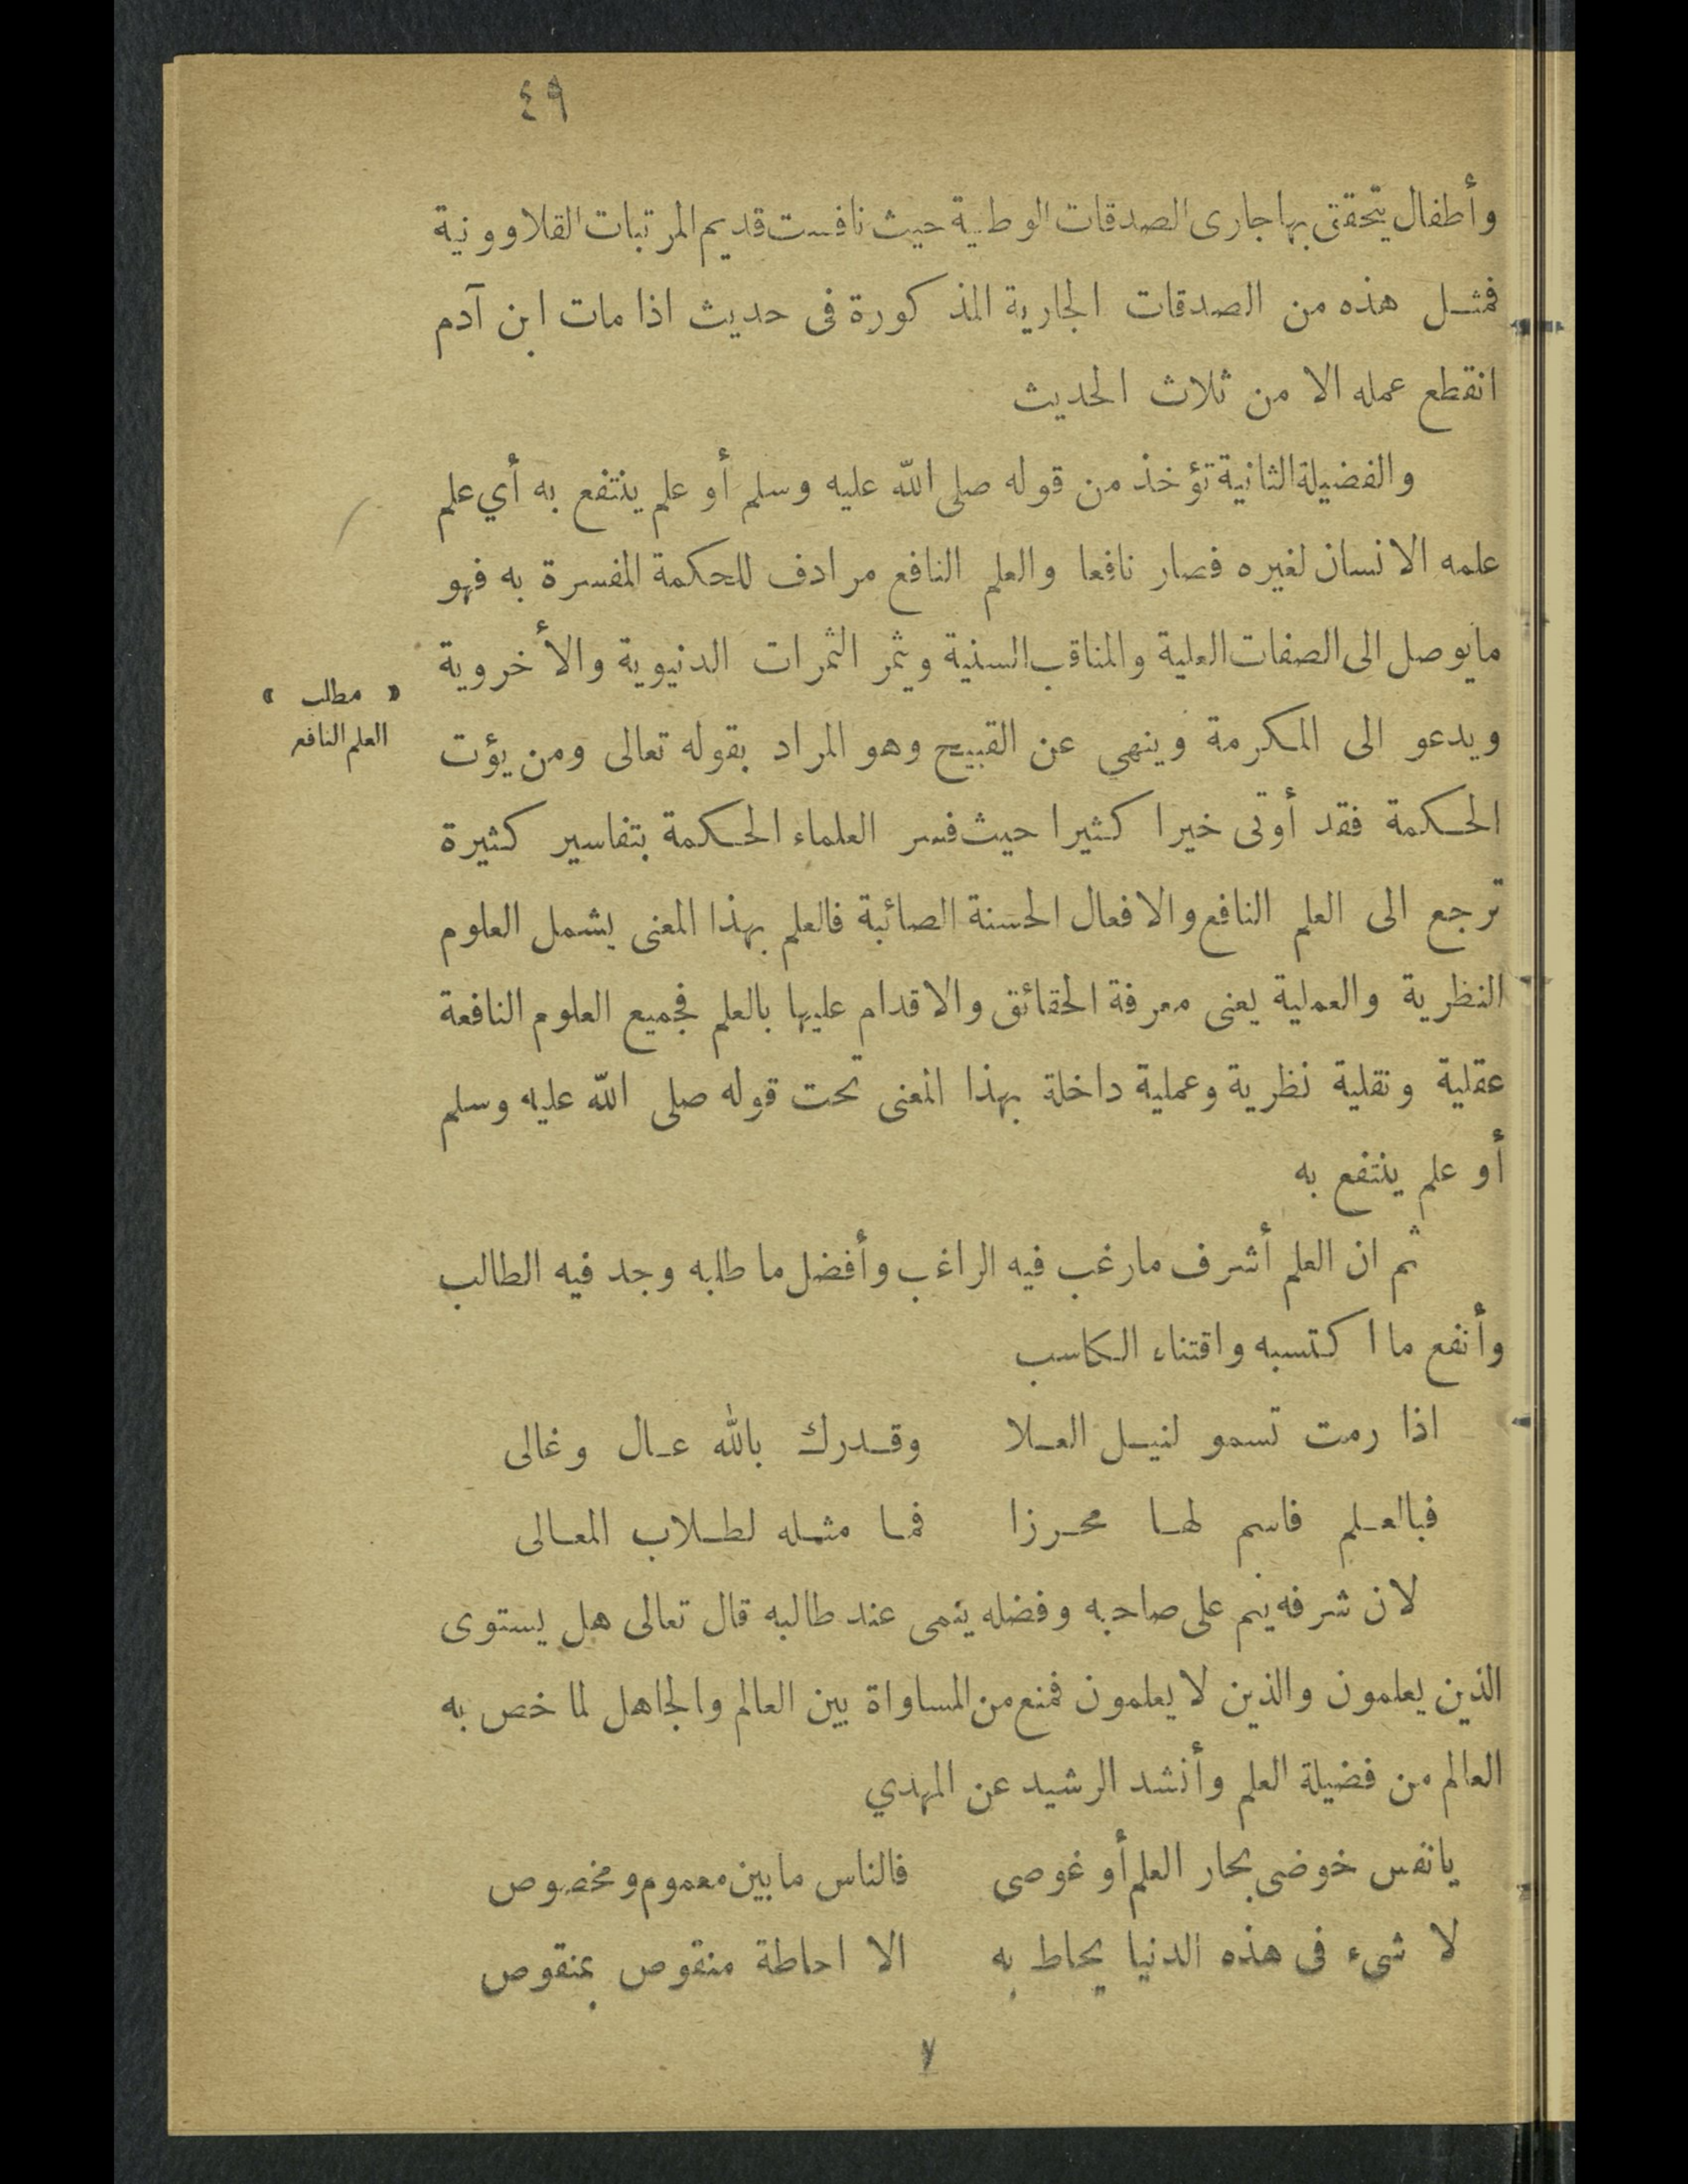 ٤٩
وأطفال يتحقق بها جارى الصدقات الوطنية حيث نافست قديم المرتبات القلاوونية
فمثل هذه من الصدقات الجارية المذكورة فى حديث اذا مات ابن آدم
انقطع عمله الا من ثلاث الحديث
والفضيلة الثانية تؤخذ من قوله صلى الله عليه وسلم أو علم ينتفع به أي علم
علمه الانسان لغيره فصار نافعا والعلم النافع مرادف للحكمة المفسرة به فهو
مايوصل الى الصفات العلية والمناقب السنية ويثمر الثمرات الدنيوية والأخروية
« مطلب »
العلم النافع
ويدعو الى المكرمة وينهى عن القبيح وهو المراد بقوله تعالى ومن يؤت
الحكمة فقد أوتى خيرا كثيرا حيث فسر العلماء الحكمة بتفاسير كثيرة
ترجع الى العلم النافع والافعال الحسنة الصائبة فالعلم بهذا المعنى يشمل العلوم
النظرية والعملية يعنى معرفة الحقائق والاقدام عليها بالعلم فجميع العلوم النافعة
عقلية ونقلية نظرية وعملية داخلة بهذا المعنى تحت قوله صلى الله عليه وسلم
أو علم ينتفع به
ثم ان العلم أشرف مارغب فيه الراغب وأفضل ما طلبه وجد فيه الطالب
وأنفع ما اكتسبه واقتناء الكاسب
اذا رمت تسمو لنيل العلا وقدرك بالله عال وغالى
فبالعلم فاسم لها محرزا فما مثله لطلاب المعالى
لان شرفه ينم على صاحبه وفضله ينمى عند طالبه قال تعالى هل يستوى
الذين يعلمون والذين لا يعلمون فمنع من المساواة بين العالم والجاهل لما خص به
العالم من فضيلة العلم وأنشد الرشيد عن المهدي
يانفس خوضى بحار العلم أو غوصى فالناس ما بين معموم ومخصوص
لا شىء فى هذه الدنيا يحاط به الا احاطة منقوص بمنقوص
٧